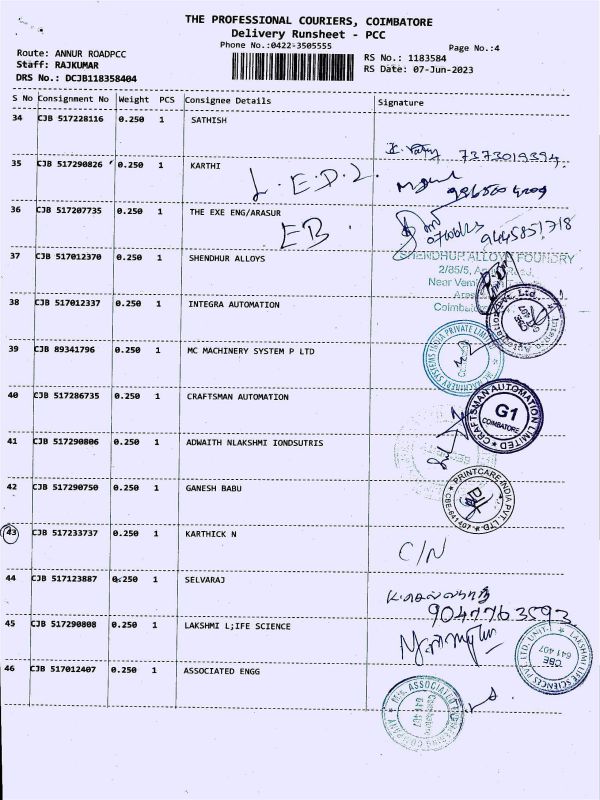 THE PROFESSIONAL COURIERS, COIMBATORE
Delivery Runsheet - PCC
Phone No.:0422-3505555
Page No.:4
Route: ANNUR ROADPCC
Staff: RAJKUMAR
DRS No.: DCJB118358404
RS No.: 1183584
RS Date: 07-Jun-2023
S No Consignment No Weight PCS Consignee Details Signature
34 CJB 517228116 0.250 1 SATHISH
7373019394
35 CJB 517290826 0.250 1 KARTHI
36 CJB 517207735 0.250 1 THE EXE ENG/ARASUR
EB
9445851718
37 CJB 517012370 0.250 1 SHENDHUR ALLOYS
SHENDHUR ALLOY FOUNDRY
2/85/5,
Near
38 CJB 517012337 0.250 1 INTEGRA AUTOMATION
39 CJB 89341796 0.250 1 MC MACHINERY SYSTEM P LTD
40 CJB 517286735 0.250 1 CRAFTSMAN AUTOMATION
CRAFTSMAN AUTOMATION LIMITED
G1
COIMBATORE
41 CJB 517290806 0.250 1 ADWAITH NLAKSHMI IONDSUTRIS
42 CJB 517290750 0.250 1 GANESH BABU
PRINTCARE INDIA PVT LTD
CBE-641407
43 CJB 517233737 0.250 1 KARTHICK N
C/N
44 CJB 517123887 0.250 1 SELVARAJ
9047763593
45 CJB 517290808 0.250 1 LAKSHMI L;IFE SCIENCE
LAKSHMI LIFE SCIENCES PVT. LTD. UNIT-
CBE
641 407
46 CJB 517012407 0.250 1 ASSOCIATED ENGG
M/s. ASSOCIATED ENGINEERING COMPANY
Coimbatore
641 407